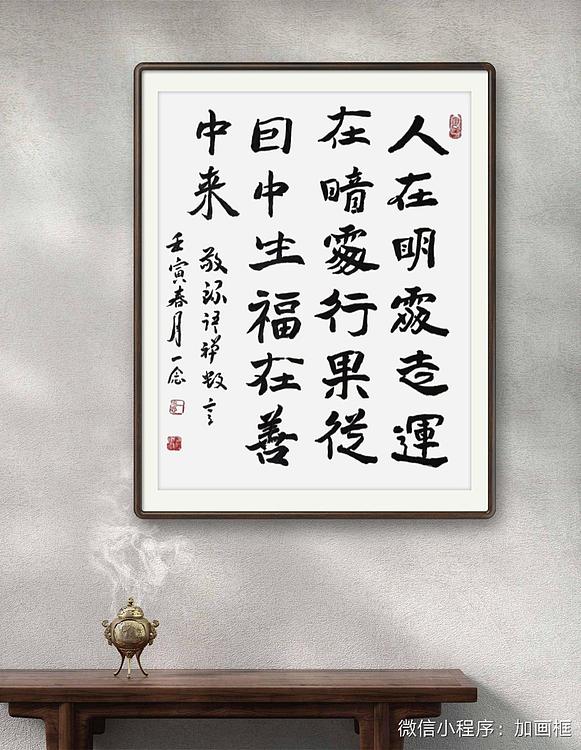 人在明處走運
在暗處行果從
囙中生福在善
中来
敬录禅数言
壬寅春月一念
微信小程序：加画框